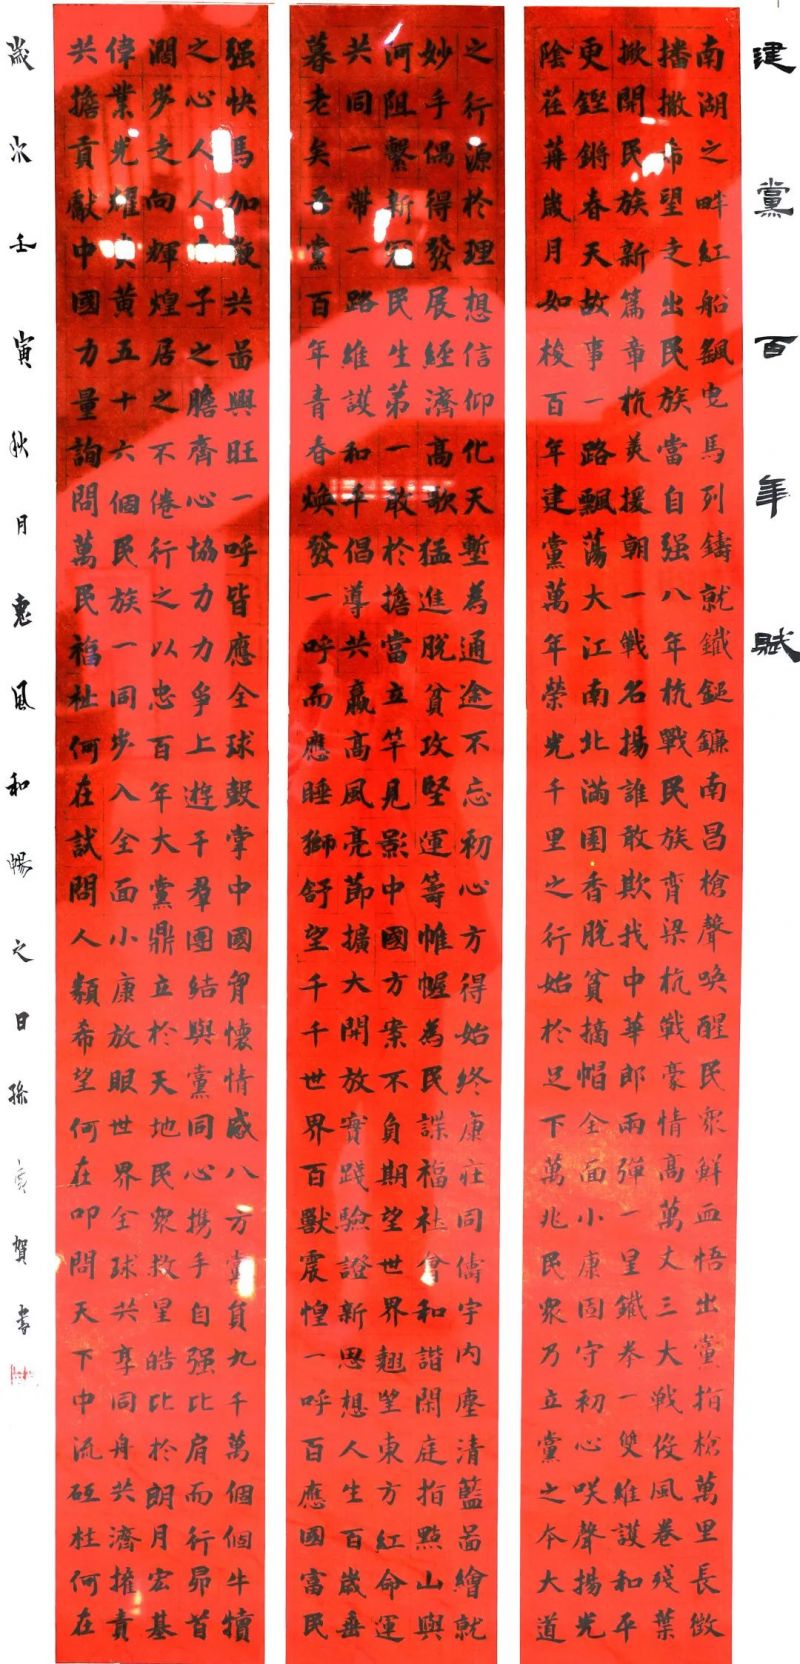 建黨百年賦
南湖之畔紅船飄曳馬列鑄就鐵鎚鐮南昌槍聲喚醒民衆鮮血悟出黨指槍萬里長徵
播撒希望走出民族當自强八年杭戰民族脊梁杭戰豪情高萬丈三大戰役風卷殘葉
掀開民族新篇章杭美援朝一戰名揚誰敢欺我中華郎兩彈一星鐵拳一雙維護和平
更鏗鏘春天故事一路飄蕩大江南北滿園香脫貧摘帽全面小康固守初心咲聲揚光
陰荏苒歲月如梭百年建黨萬年榮光千里之行始於足下萬兆民衆乃立黨之本大道
之行源於理想信仰化天塹為通途不忘初心方得始終康莊同儔宇内塵清藍啚繪就
妙手偶得發展經濟高歌猛進脫貧攻堅運籌帷幄為民諜福社會和諧閑庭指點山與
河阻繫新冠民生第一敢於擔當立竿見影中國方案不負期望世界翹望東方紅命運
共同一帶一路維護和平倡導共贏高風亮節擴大開放實踐驗證新思想人生百歲垂
暮老矣吾黨百年青春煥發一呼而應睡獅舒望千千世界百獸震惶一呼百應國富民
强快馬加鞭共啚興旺一呼皆應全球掌中國胷懷情感八方黨員九千萬個個牛犢
之心人人子之膽齊心協力力爭上遊千羣團結與黨同心携手自强比肩而行昴首
濶步走向輝煌居之不倦行之以忠百年大黨鼎立於天地民衆救星皓比於朗月宏基
偉業光耀炎黃五十六個民族一同步入全面小康放眼世界全球共享同舟共濟擁責
共擔貢獻中國力量詢問萬民福祉何在試問人類希望何在叩問天下中流砥柱何在
歲次壬寅秋月惠風和暢之日孫賀書